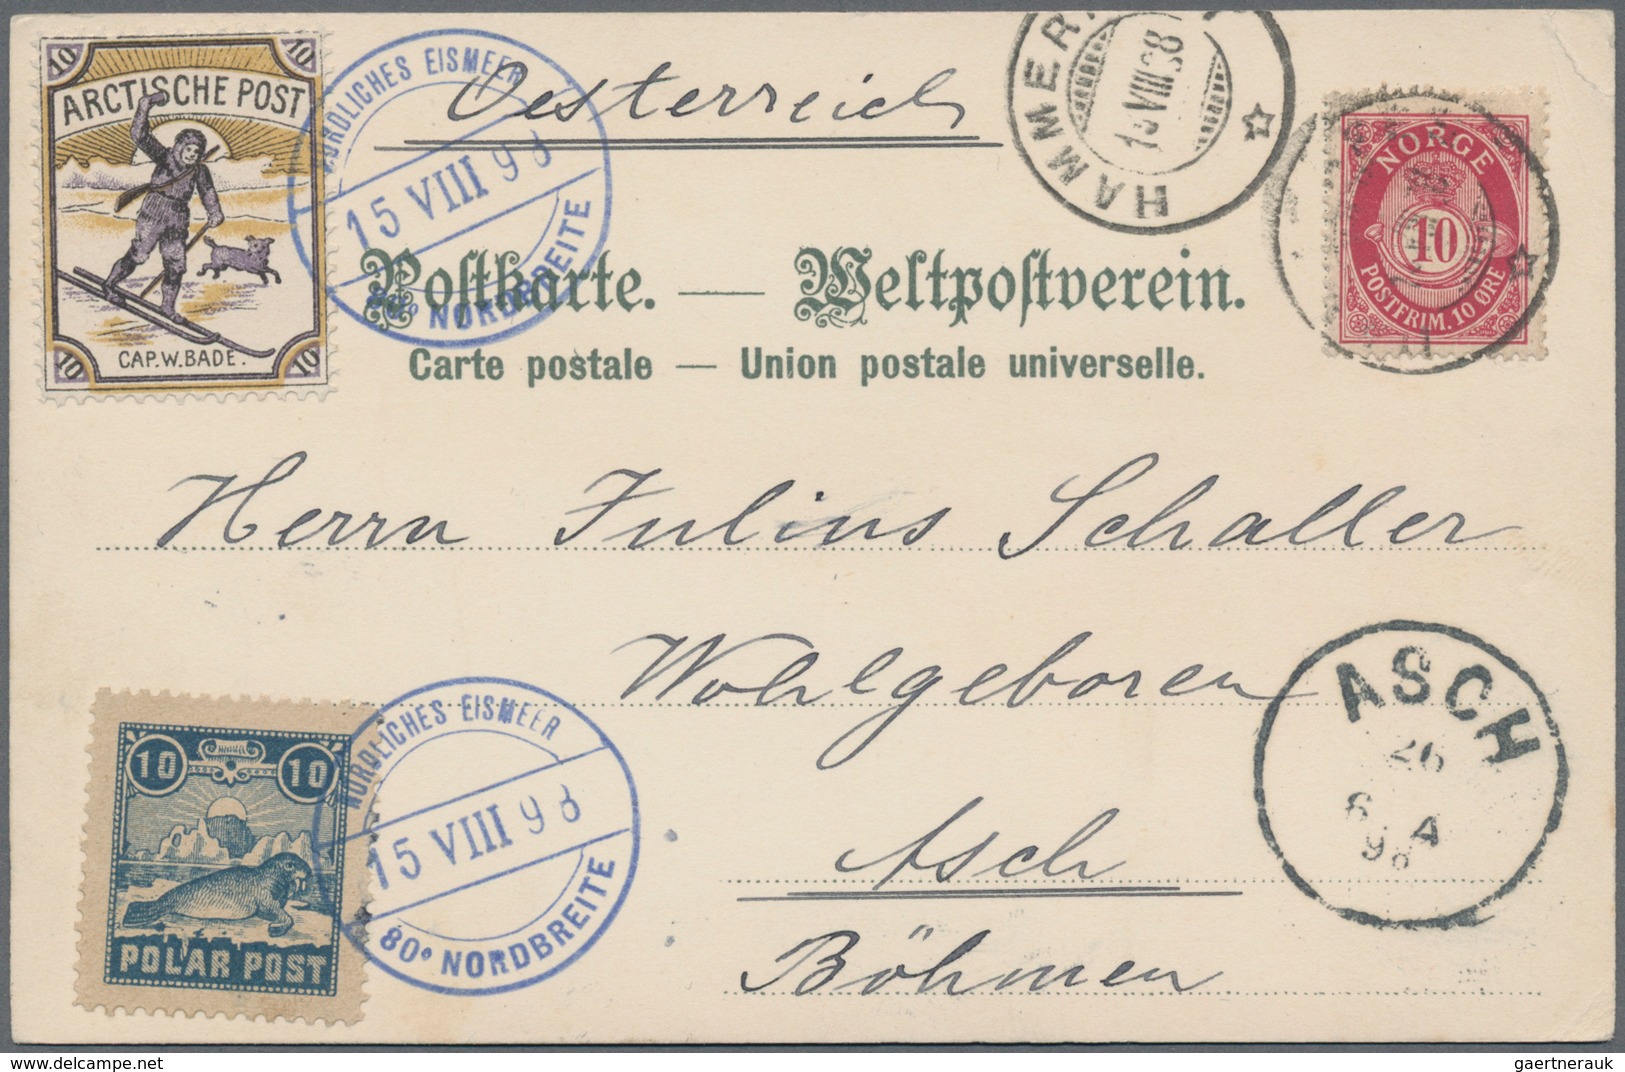 10 10
ARCTISCHE POST
CAP. W. BADE.
10 10
NÖRDLICHES EISMEER
15 VIII 98
80° NORDBREITE
Oesterreich
HAMMER
15 VIII 98
NORGE
10
POSTFRIM. 10 ØRE
Postkarte. — Weltpostverein.
Carte postale — Union postale universelle.
Herrn Julius Schaller
Wohlgeboren
Asch
Böhmen
10 10
POLAR POST
NÖRDLICHES EISMEER
15 VIII 98
80° NORDBREITE
ASCH
26
6 A
98
gaertnerauk